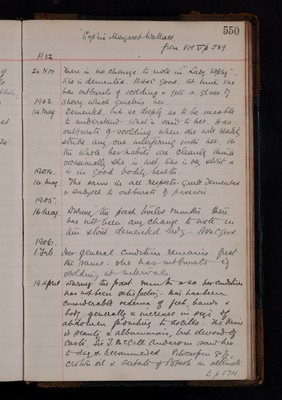 550
Sophia Margaret Wallace
from Vol V p 549
1902
26 Nov There is no change to note in "Lady Sophy".
She is demented. B.H. Good. At times she
has outbursts of scolding & gets a glass of
sherry which quietens her.
1903.
14 May Demented, but so deeply as to be unable
to understand what is said to her. Has
outbursts of scolding when she will readily
strike any one interfering with her. On
the whole her habits are cleanly tho'
occasionally she is wet. She is very stout &
is in good bodily health.
1904.
14 May The same in all respects. Quite demented
& subject to outbursts of passion
1905.
16 May During the past twelve months there
has not been any change to note in
this stout demented lady. B.H. Good
1906.
1 Feb. Her general condition remains just
the same. She has outbursts of
scolding at intervals
19 April During the past month or so her condition
has not been satisfactory. There has been
considerable oedema of feet, hands &
body generally & increase in size of
abdomen pointing to ascites. The urine
is scanty & albuminous, but devoid of
casts. Sir J. McCall Anderson saw her
to-day & recommended
croton oil & acetate of Potash in alternate